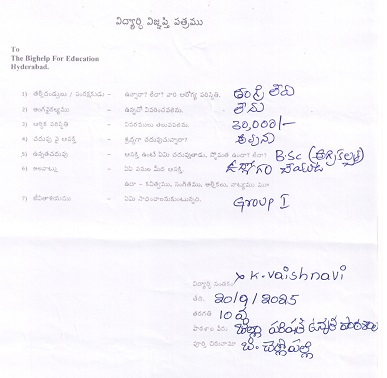 విద్యార్థి విజ్ఞప్తి పత్రము
To
The Bighelp For Education
Hyderabad.
1) తల్లిదండ్రులు / సంరక్షకుడు - ఉన్నారా? లేదా? వారి ఆరోగ్య పరిస్థితి. తండ్రి లేరు
2) అంగవైకల్యము - ఉన్నచో వివరించవలెను. లేదు
3) ఆర్థిక పరిస్థితి - వివరములు తెలుపవలెను. 30,000/-
4) చదువు పై ఆసక్తి - శ్రద్ధగా చదువుచున్నారా? అవును
5) ఉన్నతచదువు - ఆసక్తి ఉంటే ఏమి చదువుతారు, స్తోమత ఉందా? లేదా? BSC (అగ్రికల్చర్)
6) అలవాట్లు - ఏఏ పనుల మీద ఆసక్తి. ఉద్యోగం చేయుట
ఉదా - కవిత్వము, సంగీతము, ఆర్టికల్స్,
7) జీవితాశయము - ఏమి సాధించాలనుకుంటున్నారు. Group I
విద్యార్థి సంతకం K. Vaishnavi
తేది. 20/9/2025
తరగతి 10వ
పాఠశాల పేరు జిల్లా పరిషత్ ఉన్నత పాఠశాల
పూర్తి చిరునామా బి. చెర్లోపల్లి